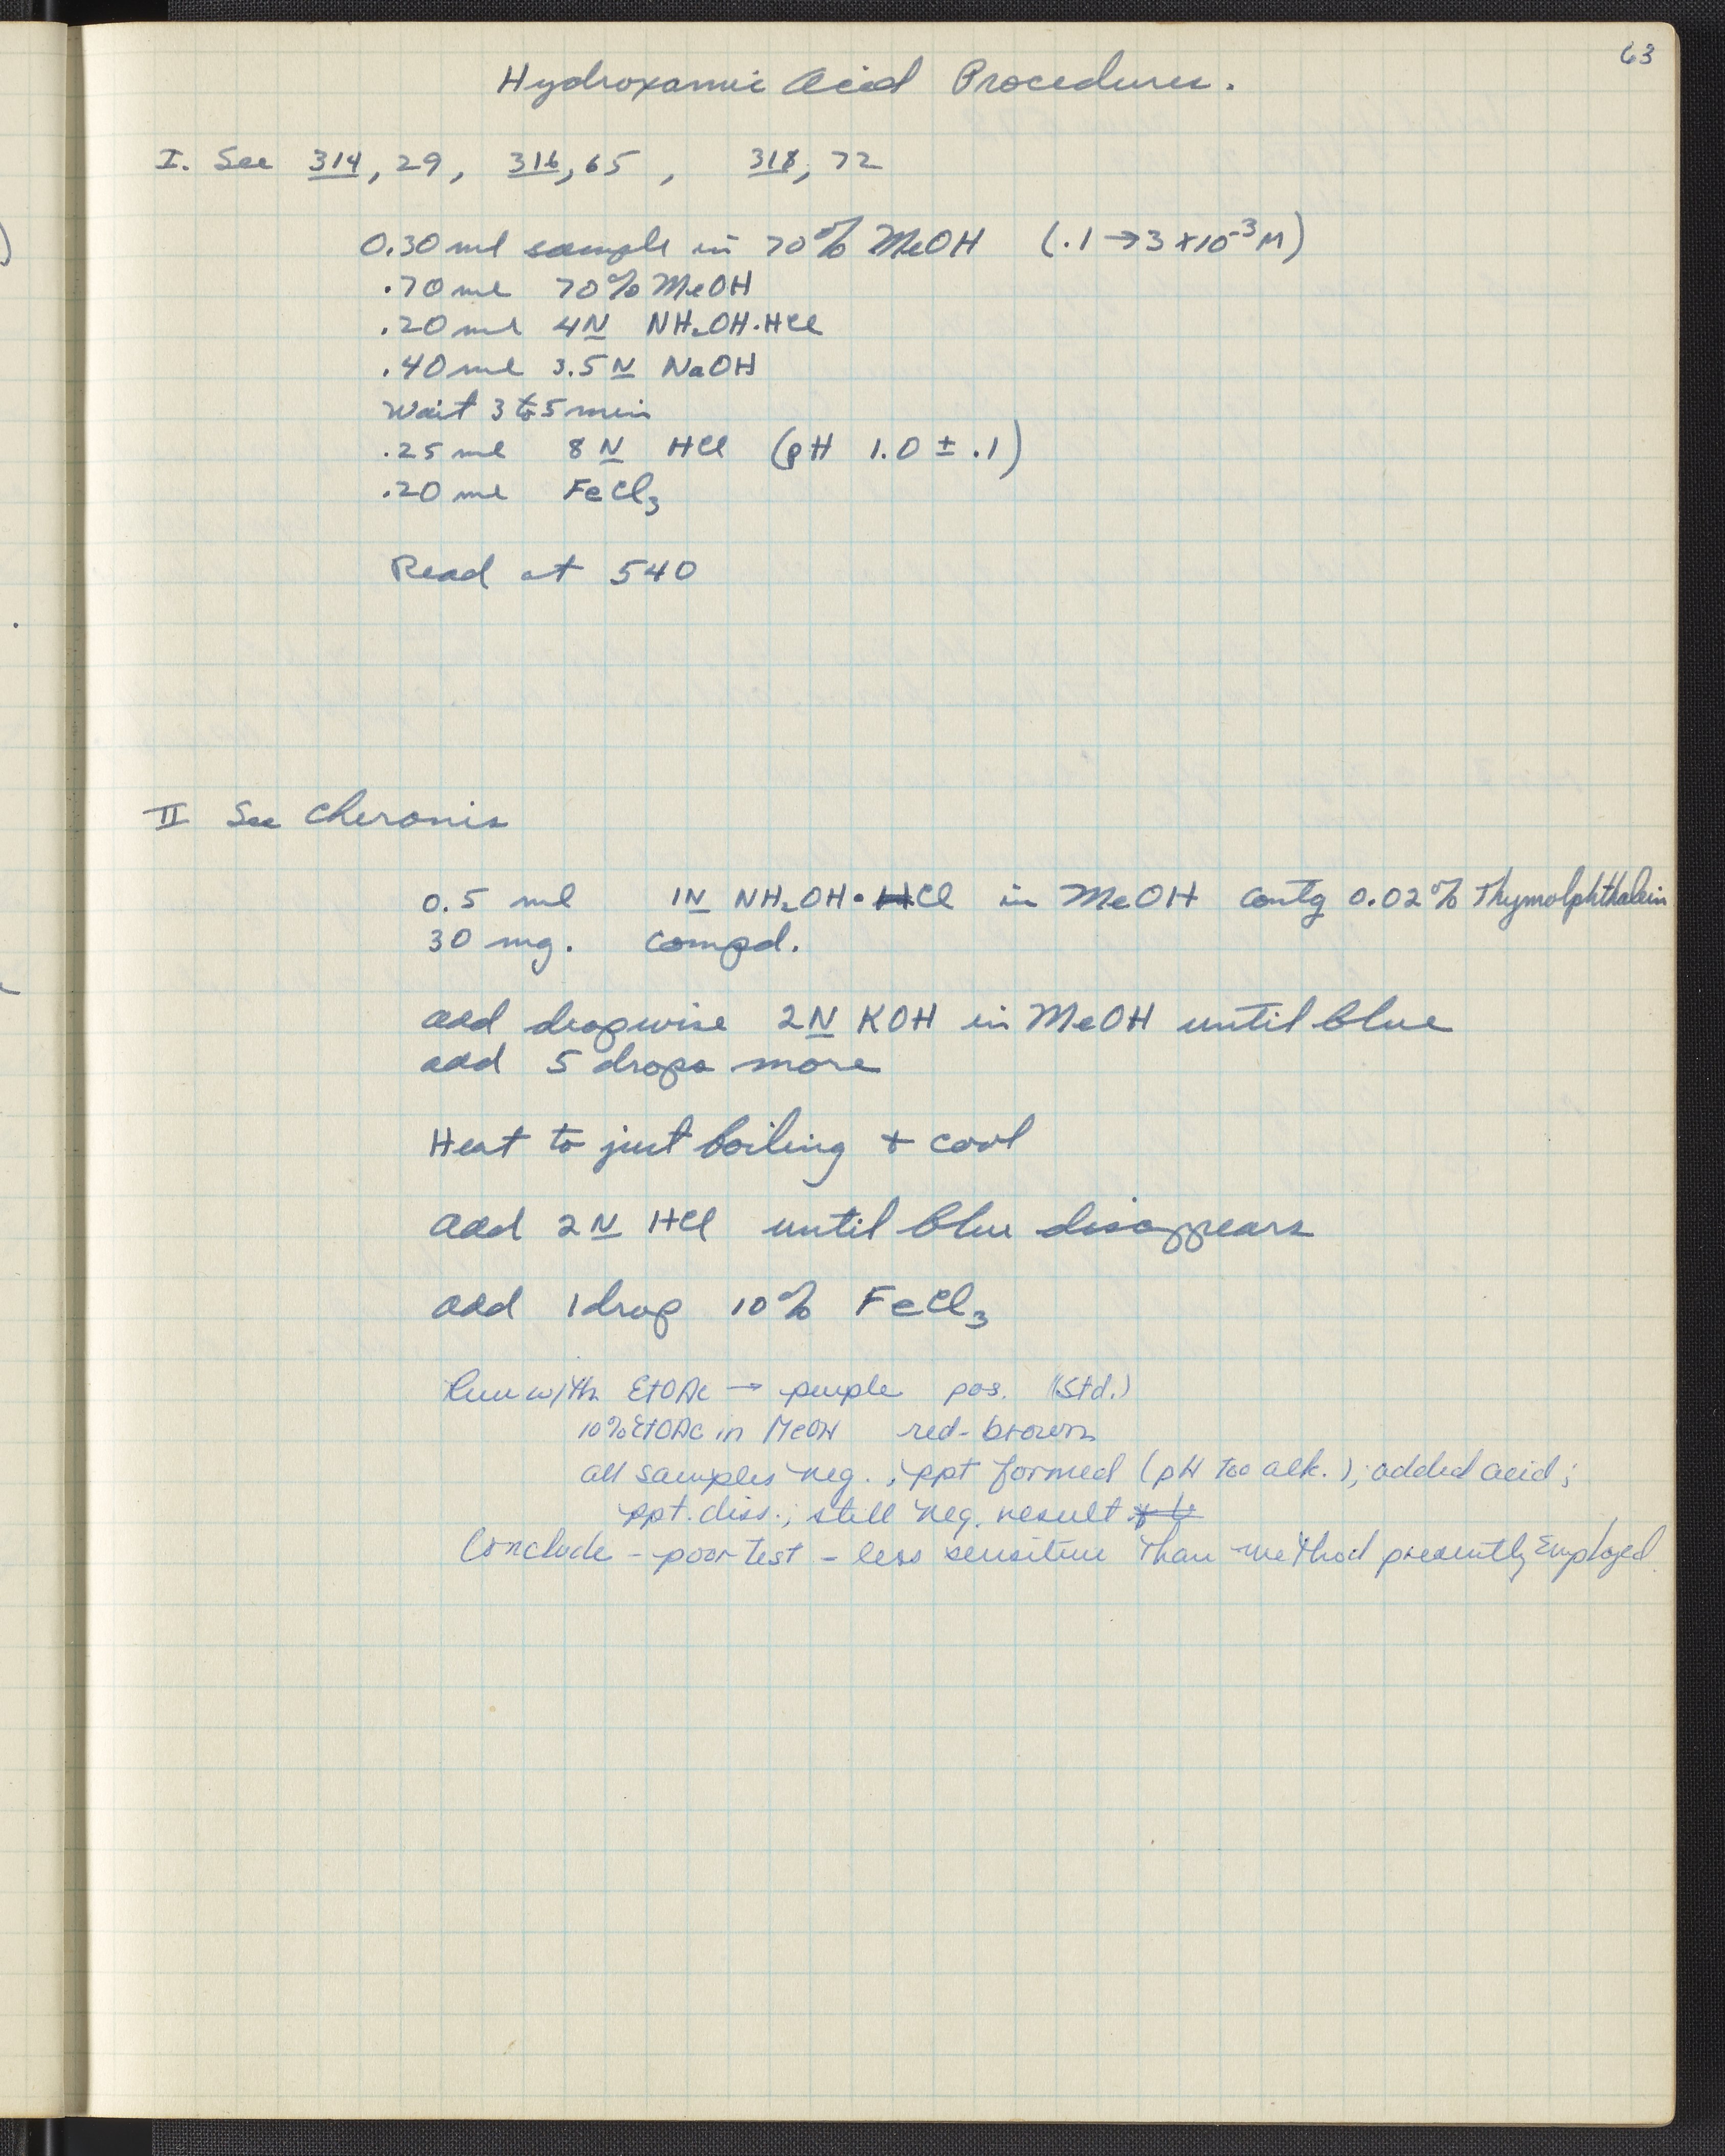 63
Hydroxamic Acid Procedures.
I. See 314, 29, 316, 65, 318, 72
0.30 ml sample in 70% MeOH (.1 → 3 x 10⁻³ M)
.70 ml 70% MeOH
.20 ml 4N NH₂OH·HCl
.40 ml 3.5N NaOH
Wait 3 to 5 min
.25 ml 8N HCl (pH 1.0 ± .1)
.20 ml FeCl₃
Read at 540
II See Cheronis
0.5 ml 1N NH₂OH·HCl in MeOH contg 0.02% Thymolphthalein
30 mg. compd.
add dropwise 2N KOH in MeOH until blue
add 5 drops more
Heat to just boiling + cool
add 2N HCl until blue disappears
add 1 drop 10% FeCl₃
Run with EtOAc → purple pos. (Std.)
10% EtOAc in MeOH red-brown
all samples neg.; ppt formed (pH too alk.); added acid;
ppt. diss.; still neg. result
Conclude - poor test - less sensitive than method presently employed.